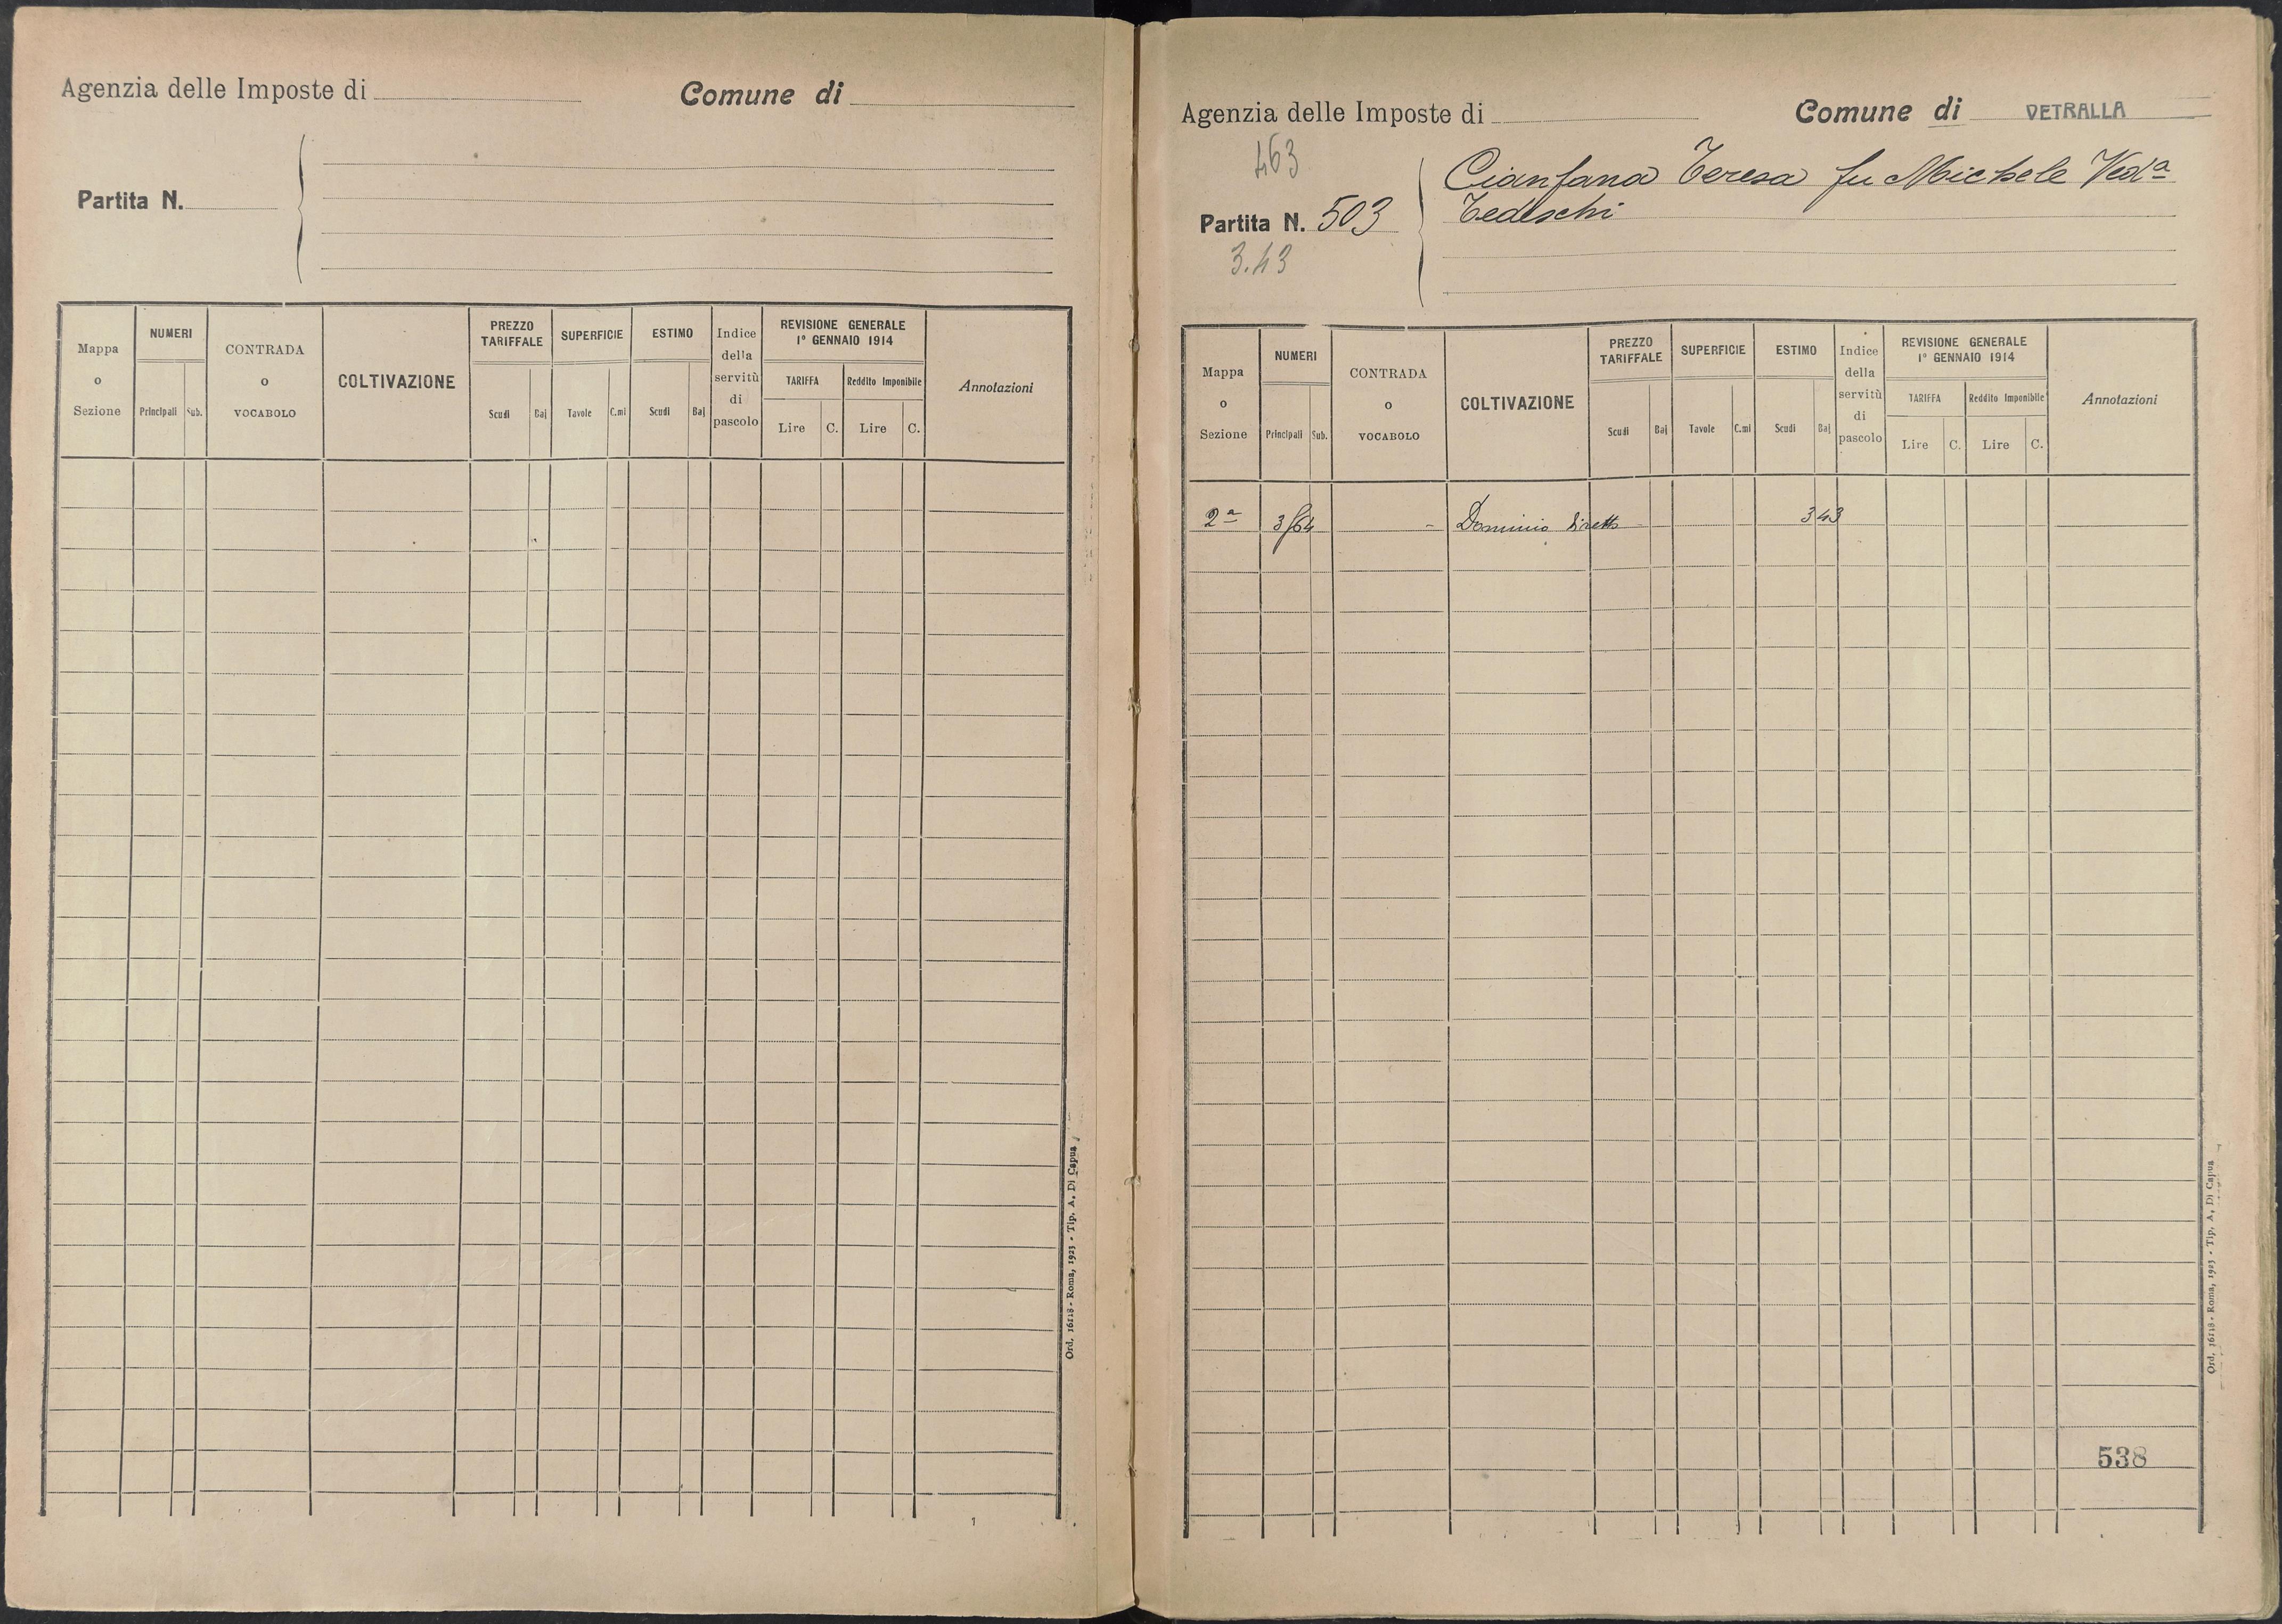 Agenzia delle Imposte di
Comune di
Partita N.
Mappa o Sezione
NUMERI
Principali
Sub.
CONTRADA o VOCABOLO
COLTIVAZIONE
PREZZO TARIFFALE
Scudi
Baj
SUPERFICIE
Tavole
C.mi
ESTIMO
Scudi
Baj
Indice della servitù di pascolo
REVISIONE GENERALE
1° GENNAIO 1914
TARIFFA
Lire
C.
Reddito Imponibile
Lire
C.
Annotazioni
Ord. 16118 - Roma, 1923 - Tip. A. Di Capua
1
Agenzia delle Imposte di
Comune di VETRALLA
463
Partita N. 503
3.43
Cianfana Teresa fu Michele Ved.a
Tedeschi
Mappa o Sezione
NUMERI
Principali
Sub.
CONTRADA o VOCABOLO
COLTIVAZIONE
PREZZO TARIFFALE
Scudi
Baj
SUPERFICIE
Tavole
C.mi
ESTIMO
Scudi
Baj
Indice della servitù di pascolo
REVISIONE GENERALE
1° GENNAIO 1914
TARIFFA
Lire
C.
Reddito Imponibile
Lire
C.
Annotazioni
2a 3/64 - Dominio diretto 3 43
538
Ord. 16118 - Roma, 1923 - Tip. A. Di Capua